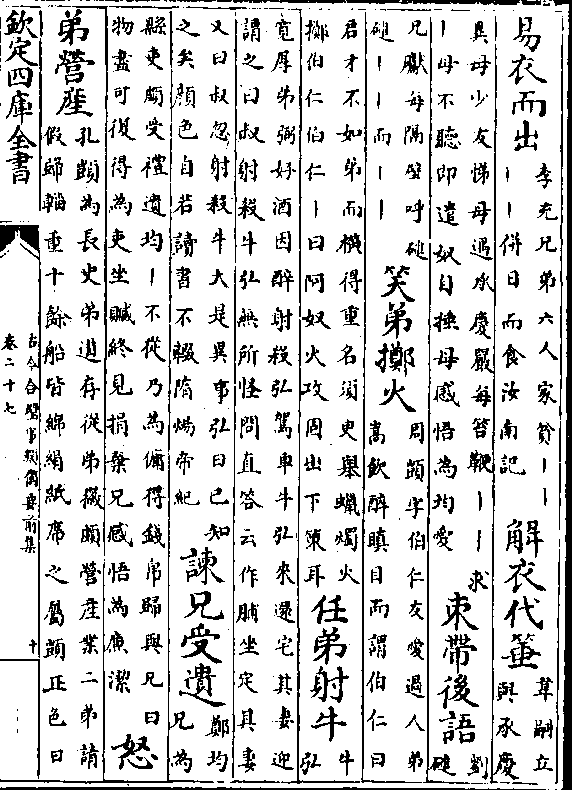 易衣而出
李充兄弟六人家貧丨丨
丨丨併日而食汝南記
解衣代箠
韋嗣立
與承慶
異母少友悌母遇承慶嚴每笞輒丨丨求
丨母不聽即遣奴自捶母感悟為均愛
束帶後語
劉
璡
兄瓛每隔壁呼璡
璡丨丨而丨丨
笑弟擲火
周顗字伯仁友愛過人弟
嵩飲醉瞋目而謂伯仁曰
君才不如弟而橫得重名須臾舉蠟燭火
擲伯仁伯仁丨曰阿奴火攻固出下策耳
任弟射牛
牛
弘
寛厚弟弼好酒因醉射殺弘駕車牛弘來還宅其妻迎
謂之曰叔射殺牛弘無所怪問直答云作脯坐定其妻
又曰叔忽射殺牛大是異事弘曰已知
之矣顔色自若讀書不輟隋煬帝紀
諫兄受遺
鄭均
兄為
縣吏頗受禮遺均丨不從乃為傭得錢帛歸與兄曰
物盡可復得為吏坐贓終見捐棄兄感悟為廉潔
怒
弟營産
孔顗為長史弟道存從弟徽頗營産業二弟請
假歸輜重十餘船皆綿絹紙席之屬顗正色曰
欽定四庫全書
古今合璧事類備要前集
卷二十七
十